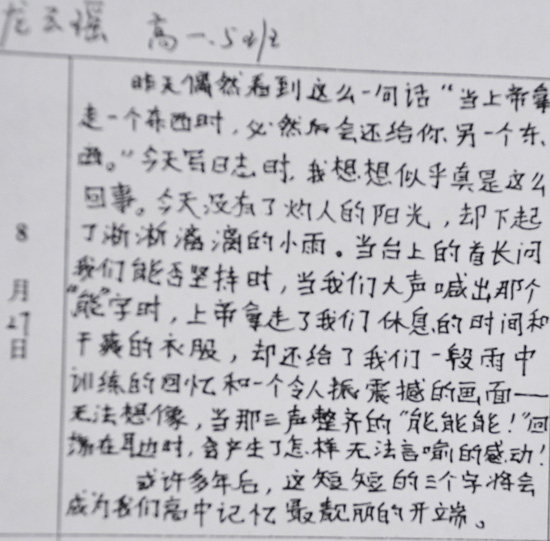 龙云瑶 高一.5班
昨天偶然看到这么一句话“当上帝拿
走一个东西时，必然后会还给你另一个东
西。”今天写日志时，我想想似乎真是这么
回事。今天没有了灼人的阳光，却下起
了淅淅漓漓的小雨。当台上的首长问
我们能否坚持时，当我们大声喊出那个
“能”字时，上帝拿走了我们休息的时间和
干爽的衣服，却还给了我们一段雨中
训练的回忆和一个令人振震撼的画面——
无法想像，当那三声整齐的“能能能！”回
荡在耳边时，会产生了怎样无法言喻的感动！
或许多年后，这短短的三个字将会
成为我们高中记忆最靓丽的开端。
8
月
27
日